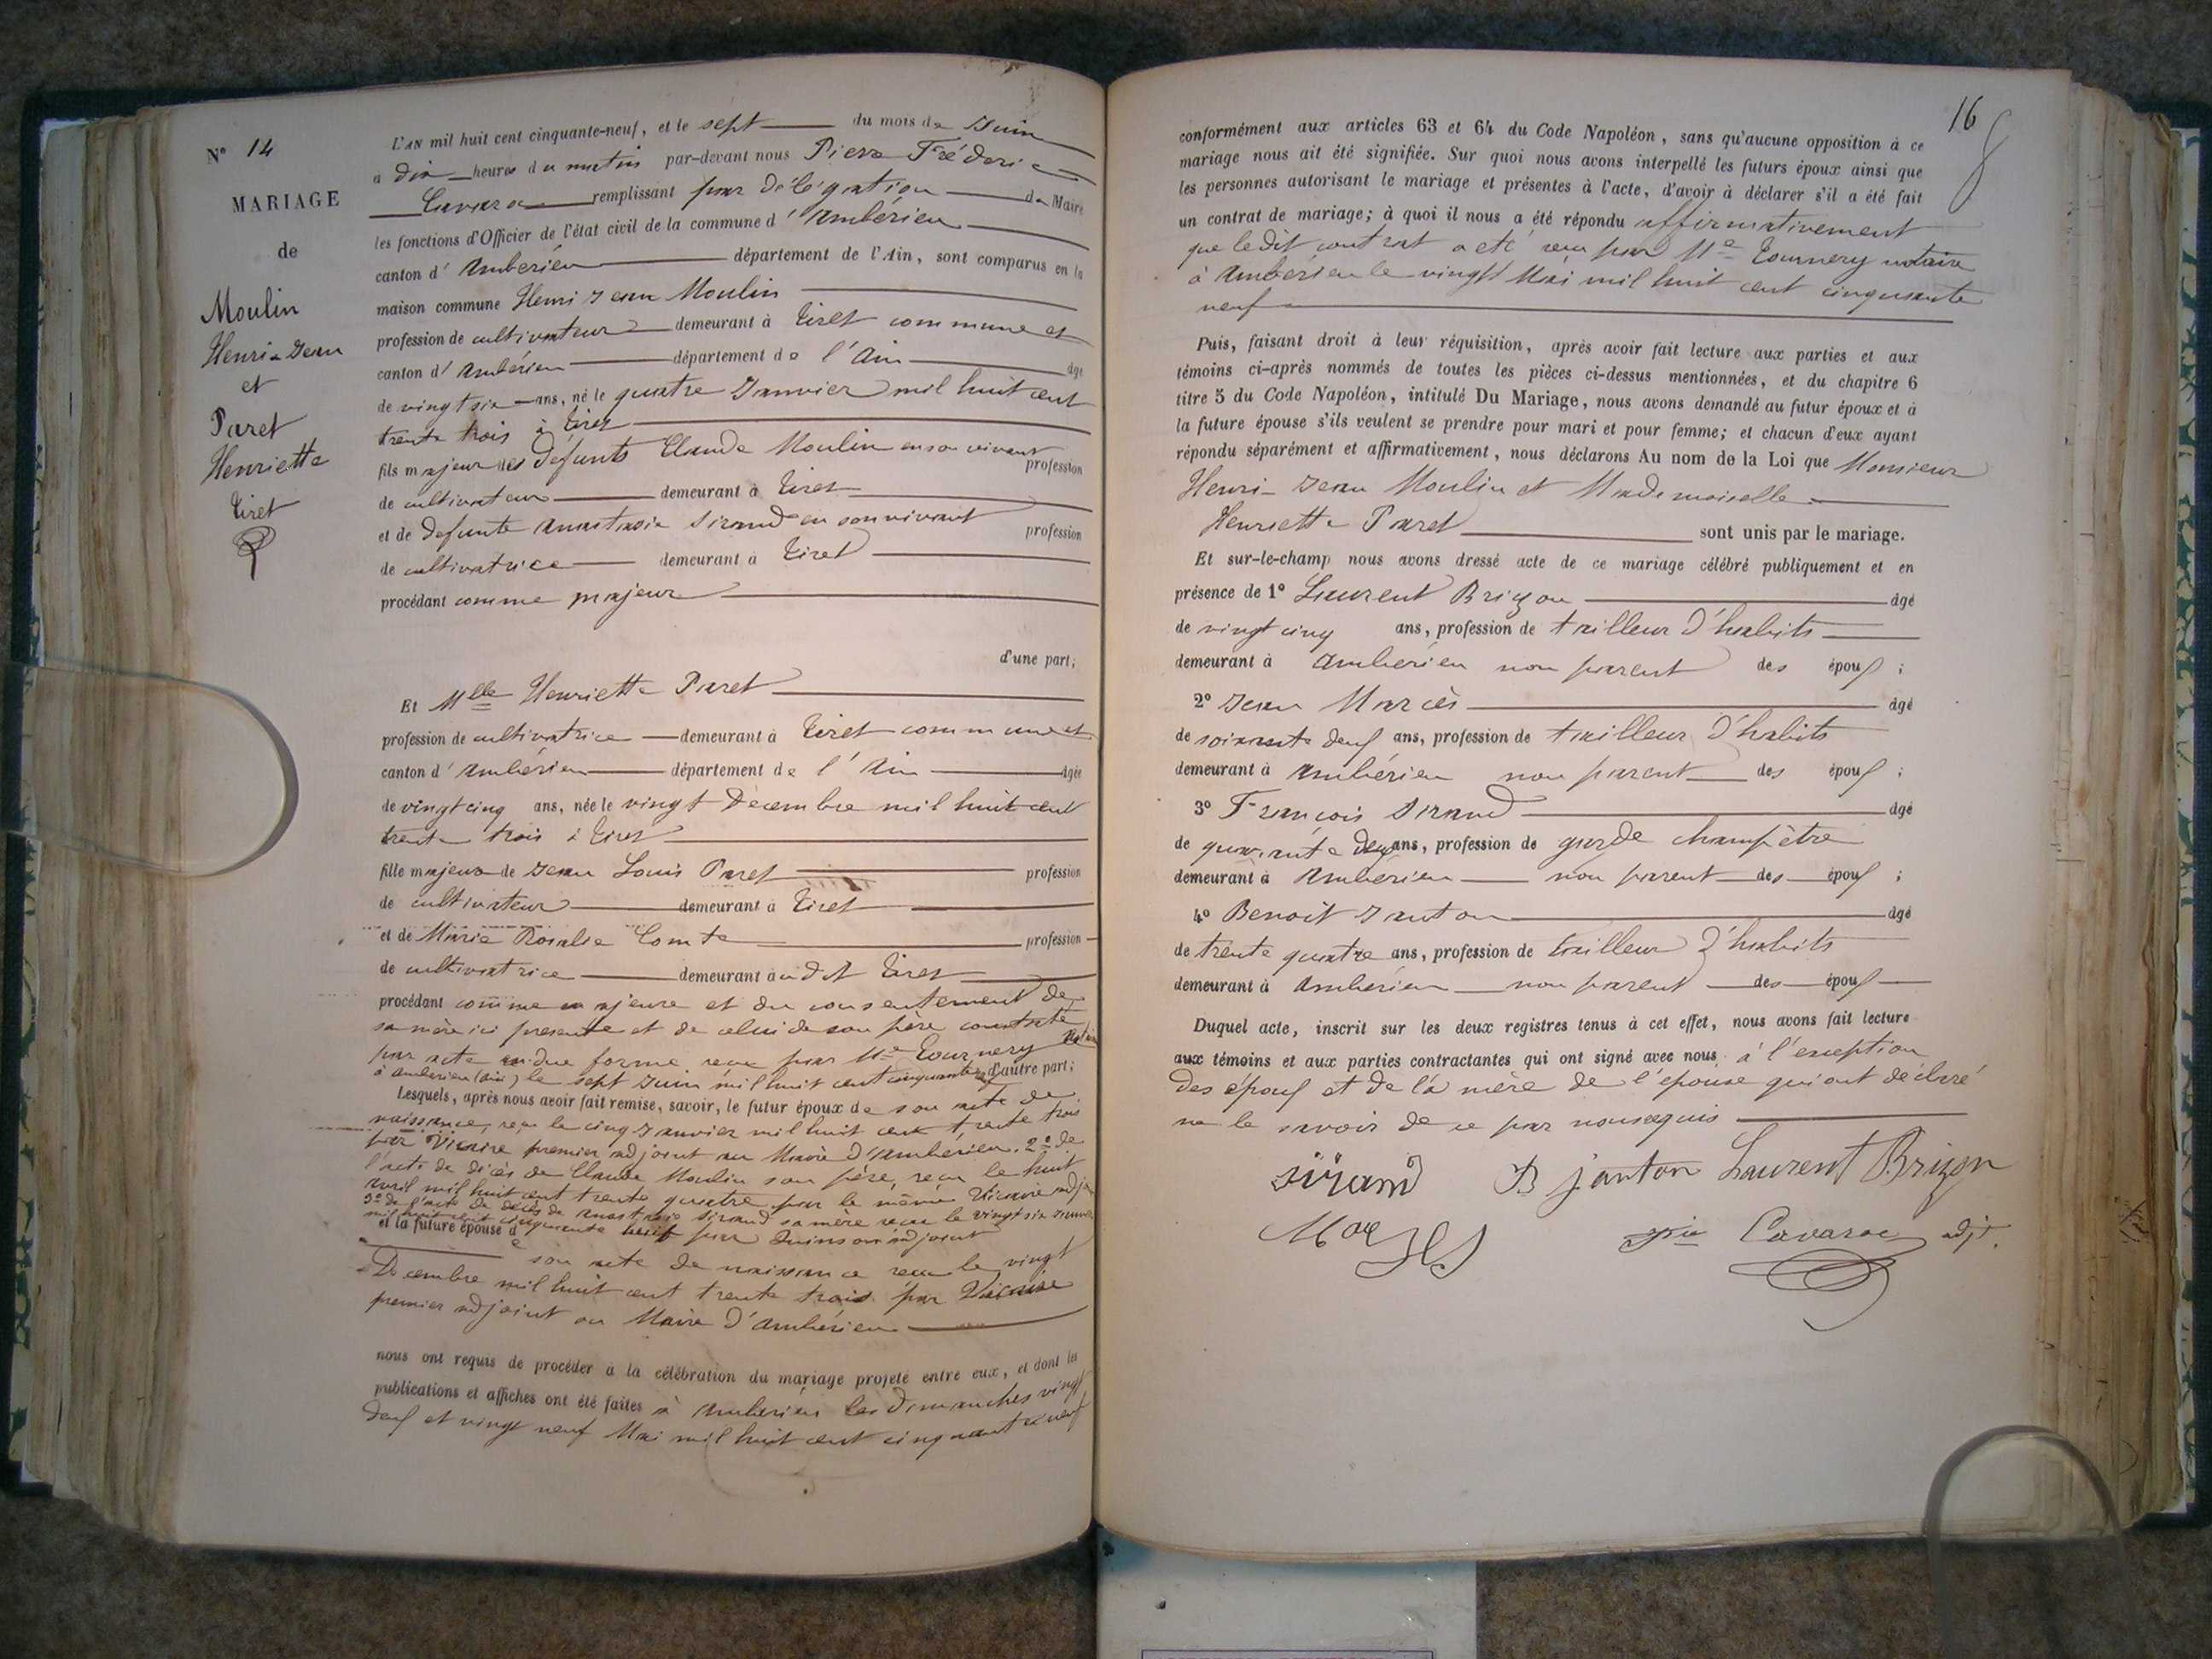 N° 14
MARIAGE
de
Moulin
Henri-Jean
et
Paret
Henriette
Tiret
L'AN mil huit cent cinquante-neuf, et le sept du mois de Juin
à dix heures du matin par-devant nous Pierre Fréderic
Cavaroc remplissant par délégation du Maire
les fonctions d'Officier de l'état civil de la commune d'Ambérieu
canton d'Ambérieu département de l'Ain, sont comparus en la
maison commune Henri Jean Moulin
profession de cultivateur demeurant à Tiret commune et
canton d'Ambérieu département de l'Ain âgé
de vingt six ans, né le quatre Janvier mil huit cent
trente trois à Tiret
fils majeur des défunts Claude Moulin en son vivant profession
de cultivateur demeurant à Tiret
et de defunte Anastasie Sirand en son vivant profession
de cultivatrice demeurant à Tiret
procédant comme majeur
d'une part;
Et Mlle Henriette Paret
profession de cultivatrice demeurant à Tiret commune et
canton d'Ambérieu département de l'Ain âgée
de vingt cinq ans, née le vingt Décembre mil huit cent
trente trois à Tiret
fille majeure de Jean Louis Paret profession
de cultivateur demeurant à Tiret
et de Marie Rosalie Comte profession
de cultivatrice demeurant audit Tiret
procédant comme majeure et du consentement de
sa mère ici présente et de celui de son père constaté
par acte en due forme reçu par Me Tournery notaire
à Ambérieu (Ain) le sept Juin mil huit cent cinquante neuf d'autre part;
Lesquels, après nous avoir fait remise, savoir, le futur époux de son acte de
naissance, reçu le cinq Janvier mil huit cent trente trois
par Vicaire premier adjoint au Maire d'Ambérieu. 2° de
l'acte de décès de Claude Moulin son père, reçu le huit
avril mil huit cent trente quatre par le même Vicaire adjoint
3° de l'acte de décès de Anastasie Sirand sa mère reçu le vingt six Janvier
mil huit cent cinquante neuf par adjoint
et la future épouse de son acte de naissance reçu le vingt
Décembre mil huit cent trente trois par Vicaire
premier adjoint au Maire d'Ambérieu
nous ont requis de procéder à la célébration du mariage projeté entre eux, et dont les
publications et affiches ont été faites à Ambérieu les Dimanches vingt
deux et vingt neuf Mai mil huit cent cinquante neuf
16
conformément aux articles 63 et 64 du Code Napoléon, sans qu'aucune opposition à ce
mariage nous ait été signifiée. Sur quoi nous avons interpellé les futurs époux ainsi que
les personnes autorisant le mariage et présentes à l'acte, d'avoir à déclarer s'il a été fait
un contrat de mariage; à quoi il nous a été répondu affirmativement
que ledit contrat a été reçu par Me Tournery notaire
à Ambérieu le vingt Mai mil huit cent cinquante
neuf
Puis, faisant droit à leur réquisition, après avoir fait lecture aux parties et aux
témoins ci-après nommés de toutes les pièces ci-dessus mentionnées, et du chapitre 6
titre 5 du Code Napoléon, intitulé Du Mariage, nous avons demandé au futur époux et à
la future épouse s'ils veulent se prendre pour mari et pour femme; et chacun d'eux ayant
répondu séparément et affirmativement, nous déclarons Au nom de la Loi que Monsieur
Henri-Jean Moulin et Mademoiselle
Henriette Paret sont unis par le mariage.
Et sur-le-champ nous avons dressé acte de ce mariage célébré publiquement et en
présence de 1° Laurent Brizon âgé
de vingt cinq ans, profession de tailleur d'habits
demeurant à Ambérieu non parent des époux;
2° Jean Marcès âgé
de soixante deux ans, profession de tailleur d'habits
demeurant à Ambérieu non parent des époux;
3° François Sirand âgé
de quarante deux ans, profession de garde champêtre
demeurant à Ambérieu non parent des époux;
4° Benoit Janton âgé
de trente quatre ans, profession de tailleur d'habits
demeurant à Ambérieu non parent des époux
Duquel acte, inscrit sur les deux registres tenus à cet effet, nous avons fait lecture
aux témoins et aux parties contractantes qui ont signé avec nous à l'exception
des époux et de la mère de l'épouse qui ont déclaré
ne le savoir de ce par nous requis
Sirand B Janton Laurent Brizon
Cavaroc adjt.